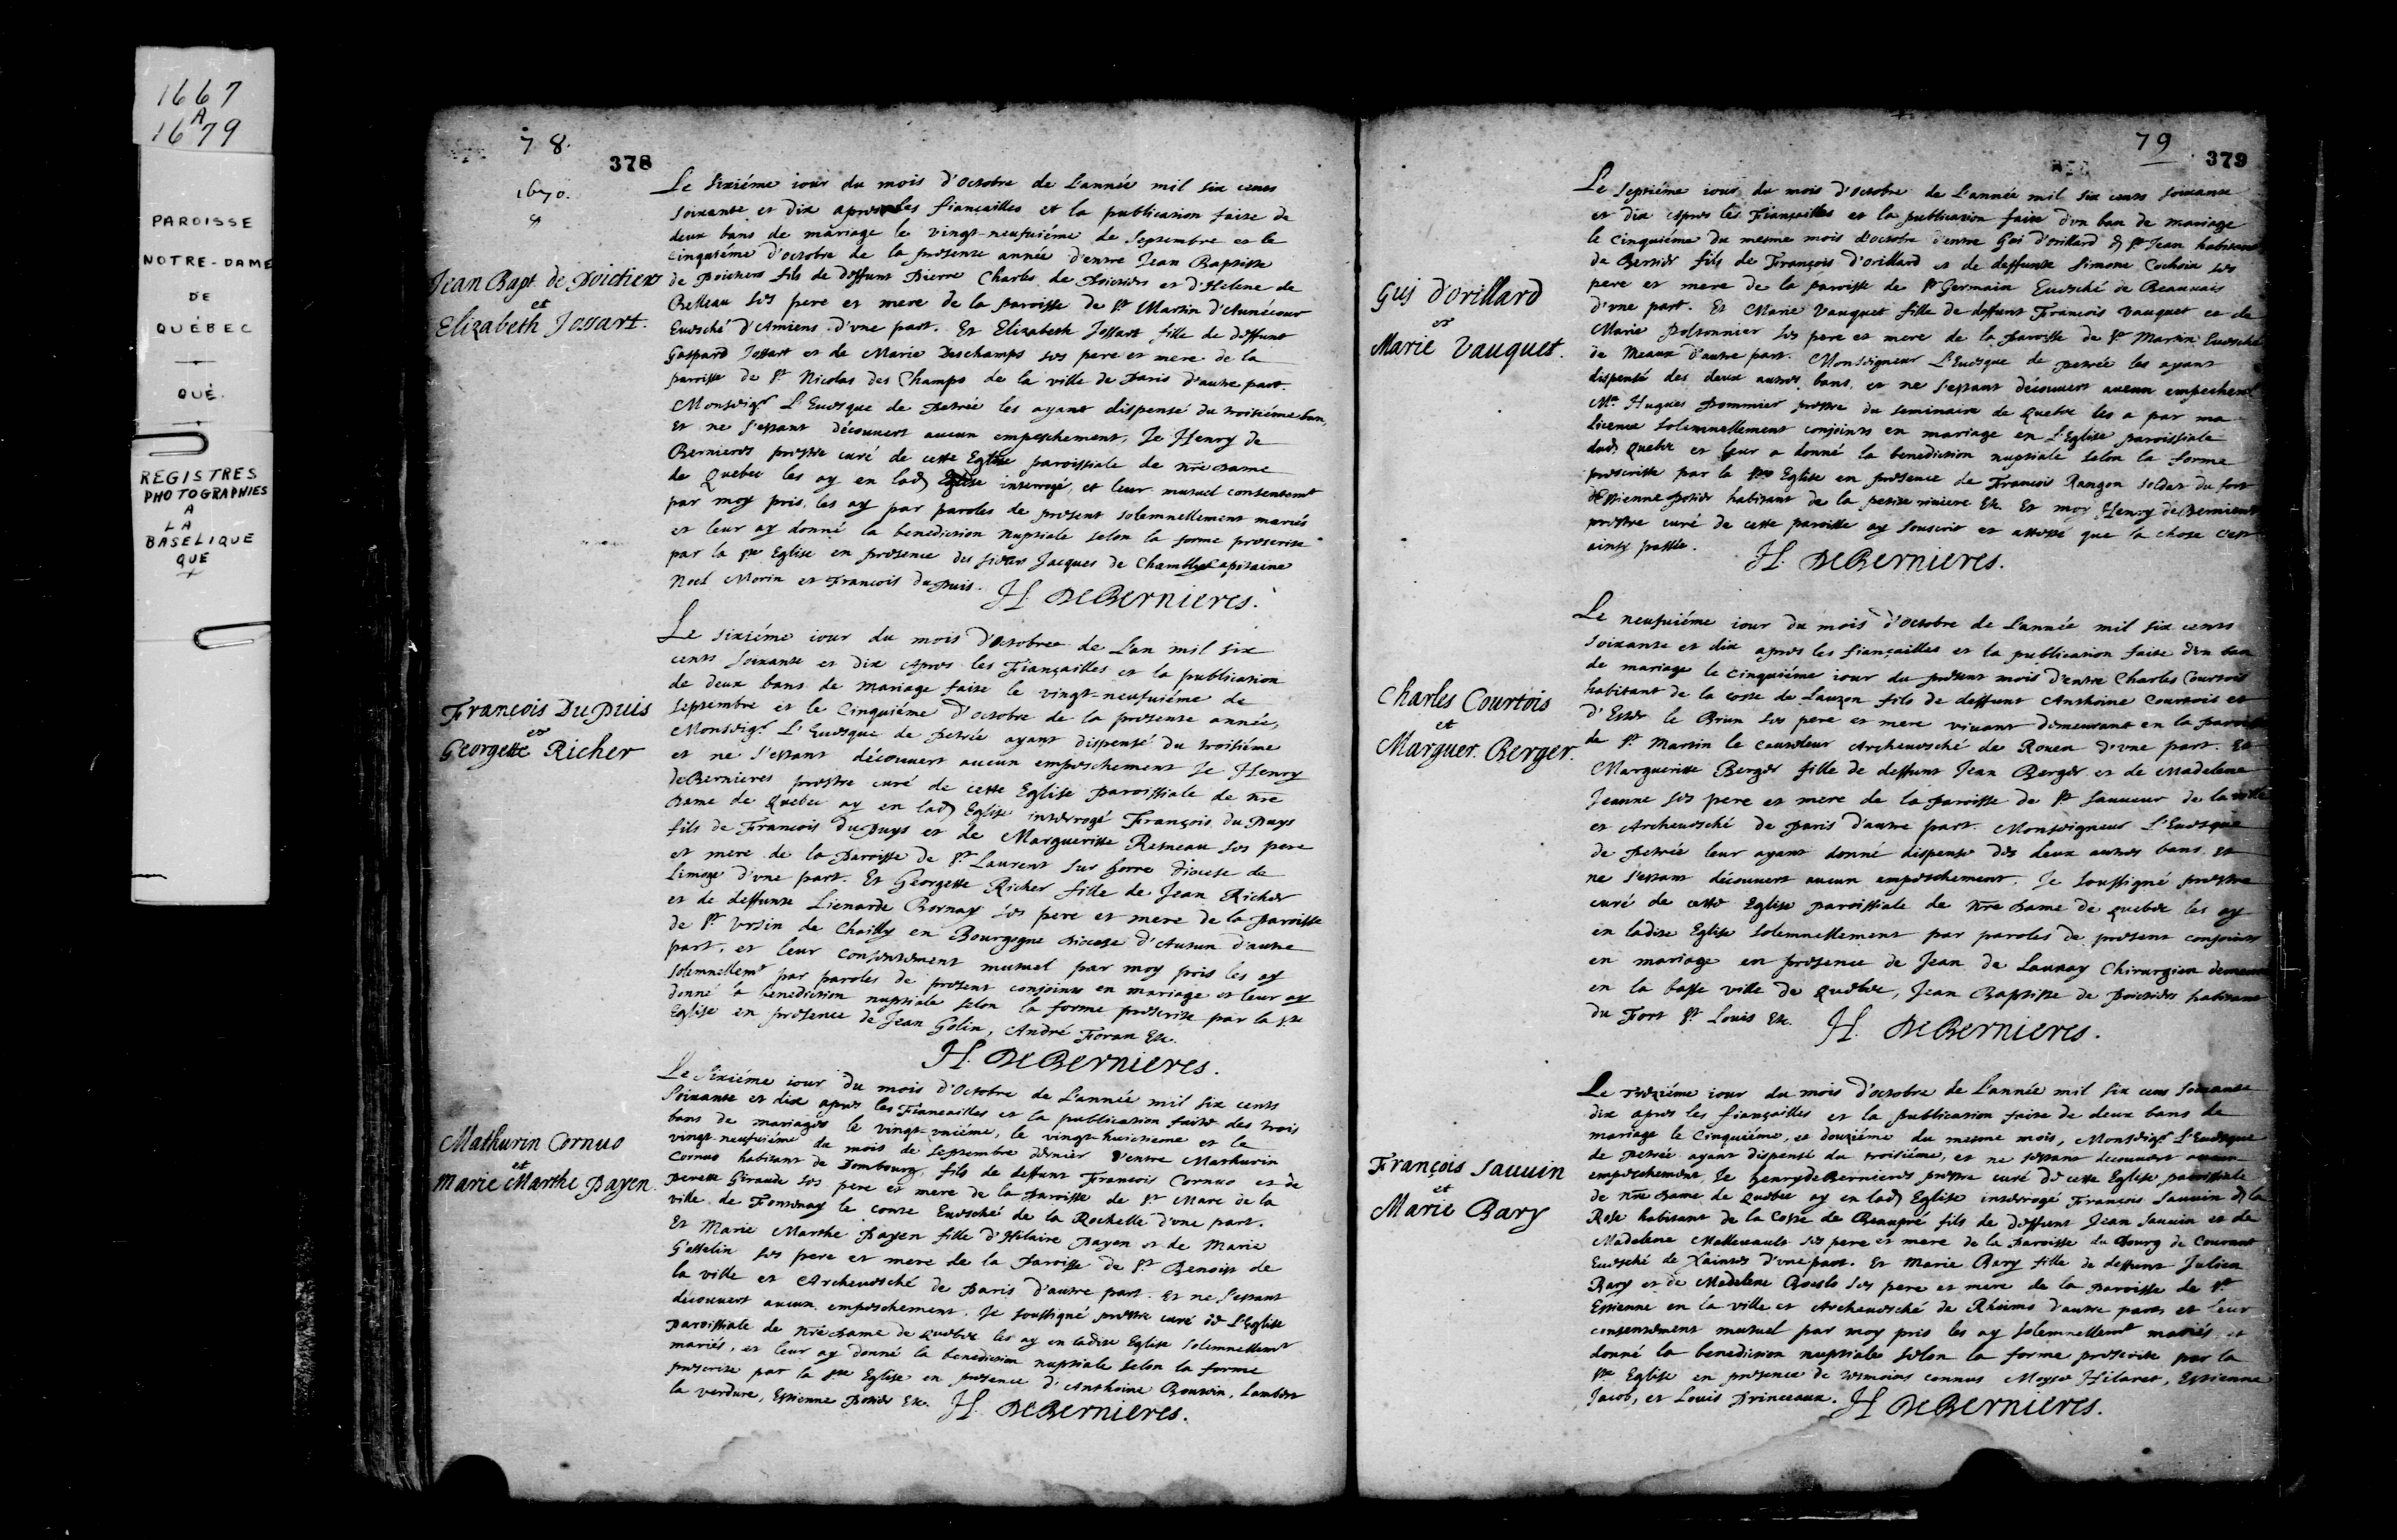 1667
A
1679
PAROISSE
NOTRE-DAME
DE
QUÉBEC
QUÉ.
REGISTRES
PHOTOGRAPHIES
A
LA
BASELIQUE
QUE
78.
378
1670.
Jean Bapt. de Poictiers
et
Elizabeth Jossart.
Le sixiéme iour du mois d'octobre de L'année mil six cents
soixante et dix apres les fiançailles et la publication faite de
deux bans de mariage le vingt-neufuiéme de septembre et le
cinquiéme d'octobre de la presente année d'entre Jean Baptiste
de Poictiers fils de deffunt Pierre Charles de Poictiers et d'Helene de
Belleau ses pere et mere de la paroisse de st Martin d'Annécour
Euesché d'Amiens d'vne part. Et Elizabeth Jossart fille de deffunt
Gaspard Jossart et de Marie Deschamps ses pere et mere de la
paroisse de st Nicolas des Champs de la ville de Paris d'autre part.
Monseigr L'Euesque de Petrée les ayant dispensé du troisiéme ban,
et ne s'estant découuert aucun empeschement, Je Henry de
Bernieres prestre curé de cette Eglise paroissiale de nre dame
de Quebec les ay en lad Eglise interrogé, et leur mutuel consentemt
par moy pris, les ay par paroles de present solemnellement mariés
et leur ay donné la benediction nuptiale selon la forme prescrite
par la ste Eglise en presence des sieurs Jacques de Chambly Capitaine
Noel Morin et François du Puis. H. DeBernieres.
François DuPuis
et
Georgette Richer
Le sixiéme iour du mois d'octobre de L'an mil six
cents soixante et dix apres les Fiançailles et la publication
de deux bans de mariage faite le vingt-neufuiéme de
septembre et le cinquiéme d'octobre de la presente année,
Monseigr L'Euesque de Petrée ayant dispensé du troisiéme
et ne s'estant découuert aucun empeschement Je Henry
deBernieres prestre curé de cette Eglise paroissiale de nre
dame de Quebec ay en lad Eglise interrogé François du Puys
fils de François duPuys et de Margueritte Resneau ses pere
et mere de la Paroisse de st Laurent sur gorre diocese de
Limoge d'vne part. Et Georgette Richer fille de Jean Richer
et de deffunte Lienarde Bornay ses pere et mere de la Paroisse
de st Vrsin de Chailly en Bourgogne diocese d'Autun d'autre
part, et leur consentement mutuel par moy pris les ay
solemnellemt par paroles de present conjoints en mariage et leur ay
donné la benediction nuptiale selon la forme prescrite par la ste
Eglise en presence de Jean Golin, André Foran Etc.
H. DeBernieres.
Mathurin Cornuo
et
Marie Marthe Payen.
Le sixiéme iour du mois d'octobre de L'année mil six cents
soixante et dix apres les Fiançailles et la publication faite des trois
bans de mariages le vingt-vniéme, le vingt-huictieme et le
vingt-neufuiéme du mois de septembre dernier d'entre Mathurin
Cornuo habitant de Dombourg, fils de deffunt François Cornuo et de
Perette Giraude ses pere et mere de la Paroisse de st Marc de la
ville de Fontenay le conte Euesché de la Rochelle d'vne part.
Et Marie Marthe Payen fille d'Hilaire Payen et de Marie
Gosselin ses pere et mere de la Paroisse de st Benoist de
la ville et Archeuesché de Paris d'autre part. Et ne s'estant
découuert aucun empeschement. Je soussigné prestre curé de L'Eglise
paroissiale de nre dame de Quebec les ay en ladite Eglise solemnellemt
mariés, et leur ay donné la benediction nuptiale selon la forme
prescrite par la ste Eglise en presence d'Anthoine Bouuin, Lambert
la verdure, Estienne Potier Etc. H. DeBernieres.
79
379
Gui d'orillard
et
Marie Vauquet.
Le septiéme iour du mois d'octobre de L'année mil six cents soixante
et dix apres les Fiançailles et la publication faite d'vn ban de mariage
le cinquiéme du mesme mois d'octobre d'entre Gui d'orillard d st Jean habitant
de Bertier fils de François d'orillard et de deffunte Simone Cochoin ses
pere et mere de la paroisse de st Germain Euesché de Beauuais
d'vne part. Et Marie Vauquet fille de deffunt François Vauquet et de
Marie Poltonnier ses pere et mere de la Paroisse de st Martin Euesché
de Meaux d'autre part. Monseigneur L'Euesque de Petrée les ayant
dispensé des deux autres bans, et ne s'estant découuert aucun empechemt
Mre Hugues Pommier prestre du seminaire de Quebec les a par ma
licence solemnellement conjoints en mariage en L'Eglise paroissiale
dud Quebec et leur a donné la benediction nuptiale selon la forme
prescritte par la ste Eglise en presence de François Rangon soldat du fort
d'Estienne Potier habitant de la petite riuiere Etc. Et moy Henry deBernieres
prestre curé de cette paroisse ay souscrit et attesté que la chose s'est
ainsy passée. H. DeBernieres.
Charles Courtois
et
Marguer. Berger.
Le neufuiéme iour du mois d'octobre de L'année mil six cents
soixante et dix apres les fiançailles et la publication faite d'vn ban
de mariage le cinquiéme iour du present mois d'entre Charles Courtois
habitant de la coste de Lauzon fils de deffunt Anthoine Courtois et
d'Ester le Brun ses pere et mere viuant demeurant en la paroisse
de st Martin le Archeuesché de Rouen d'vne part. Et
Margueritte Berger fille de deffunt Jean Berger et de Madelene
Jeanne ses pere et mere de la paroisse de st Sauueur de la ville
et Archeuesché de Paris d'autre part. Monseigneur L'Euesque
de Petrée leur ayant donné dispense des deux autres bans et
ne s'estant découuert aucun empeschement. Je soussigné prestre
curé de cette Eglise paroissiale de nre dame de Quebec les ay
en ladite Eglise solemnellement par paroles de present conjoints
en mariage en presence de Jean de Launay Chirurgien
en la basse ville de Quebec, Jean Baptiste de Poictiers habitant
du Fort st Louis Etc. H. DeBernieres.
François Sauuin
et
Marie Bary
Le treziéme iour du mois d'octobre de L'année mil six cens soixante
dix apres les fiançailles et la publication faite de deux bans de
mariage le cinquiéme, et douziéme du mesme mois, Monseigr L'Euesque
de Petrée ayant dispensé du troisiéme, et ne s'estant decouuert aucun
empeschement, Je henry deBernieres prestre curé de cette Eglise paroissiale
de nre dame de Quebec ay en lad Eglise interrogé François Sauuin d la
Rose habitant de la Coste de Beaupré fils de deffunt Jean Sauuin et de
Madelene Malleuault ses pere et mere de la Paroisse du Bourg de Courant
Euesché de Xaintes d'vne part. Et Marie Bary fille de deffunt Julien
Bary et de Madelene ses pere et mere de la Paroisse de st
Estienne en la ville et Archeuesché de Rheims d'autre part, et leur
consentement mutuel par moy pris les ay solemnellemt mariés et
donné la benediction nuptiale selon la forme prescrite par la
ste Eglise en presence de tesmoins connus Moyse Hilaret, Estienne
Jacob, et Louis Princeaux. H. DeBernieres.